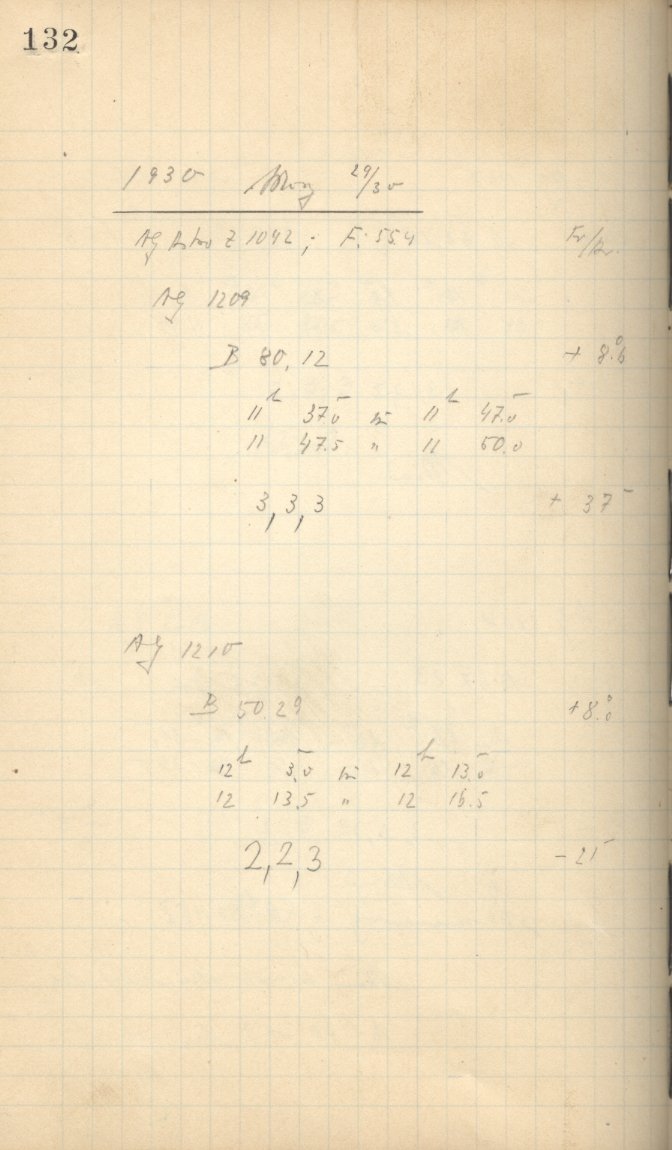 132
1930 29/30
Ag Astro Z 1042; F: 55.4
AG 1209
B 80.12 + 8.°6
11h 37.0 bis 11h 47.0
11 47.5 " 11 50.0
3, 3, 3 + 37
AG 1210
B 50.29 +8.°0
12h 3.0 bis 12h 13.0
12 13.5 " 12 16.5
2, 2, 3